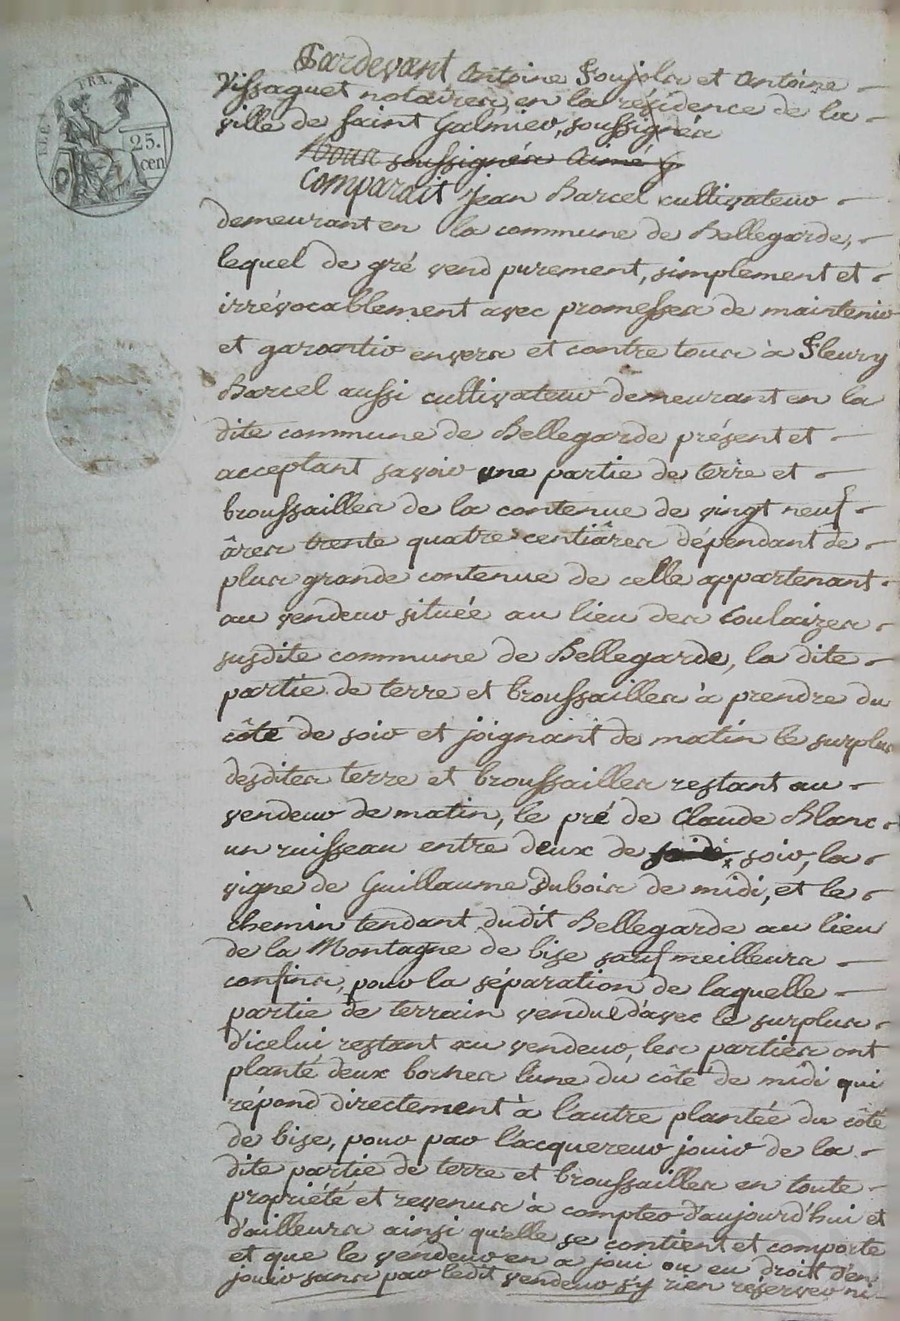 REP. FRA.
25.
cen
Pardevant Antoine Soujola et Antoine
Vissaguet notaires, en la résidence de la
ville de saint Galmier, soussignés
Nous soussignés Aimé
Comparait Jean Barcel cultivateur
demeurant en la commune de Bellegarde,
lequel de gré vend purement, simplement et
irrévocablement avec promesses de maintenir
et garantir envers et contre tous à Fleury
Barcel aussi cultivateur demeurant en la
dite commune de Bellegarde présent et
acceptant savoir une partie de terre et
broussailles de la contenue de vingt neuf
âres trente quatre centiâres dépendant de
plus grande contenue de celle appartenant
au vendeur située au lieu des Coulaizes
susdite commune de Bellegarde, la dite
partie de terre et broussailles à prendre du
côté de soir et joignant de matin le surplus
desdites terre et broussailles restant au
vendeur de matin, le pré de Claude Blanc
un ruisseau entre deux de soir, la
vigne de Guillaume Dubois de midi, et le
chemin tendant dudit Bellegarde au lieu
de la Montagne de bize sauf meilleurs
confins, pour la séparation de laquelle
partie de terrain vendue d'avec le surplus
d'icelui restant au vendeur, les parties ont
planté deux bornes l'une du côté de midi qui
répond directement à l'autre plantée du côté
de bise, pour par l'acquereur jouir de la
dite partie de terre et broussailles en toute
propriété et revenus à compter d'aujourd'hui et
d'ailleurs ainsi qu'elle se contient et comporte
et que le vendeur en a joui ou eu droit d'en
jouir sans par ledit vendeur s'y rien réserver ni